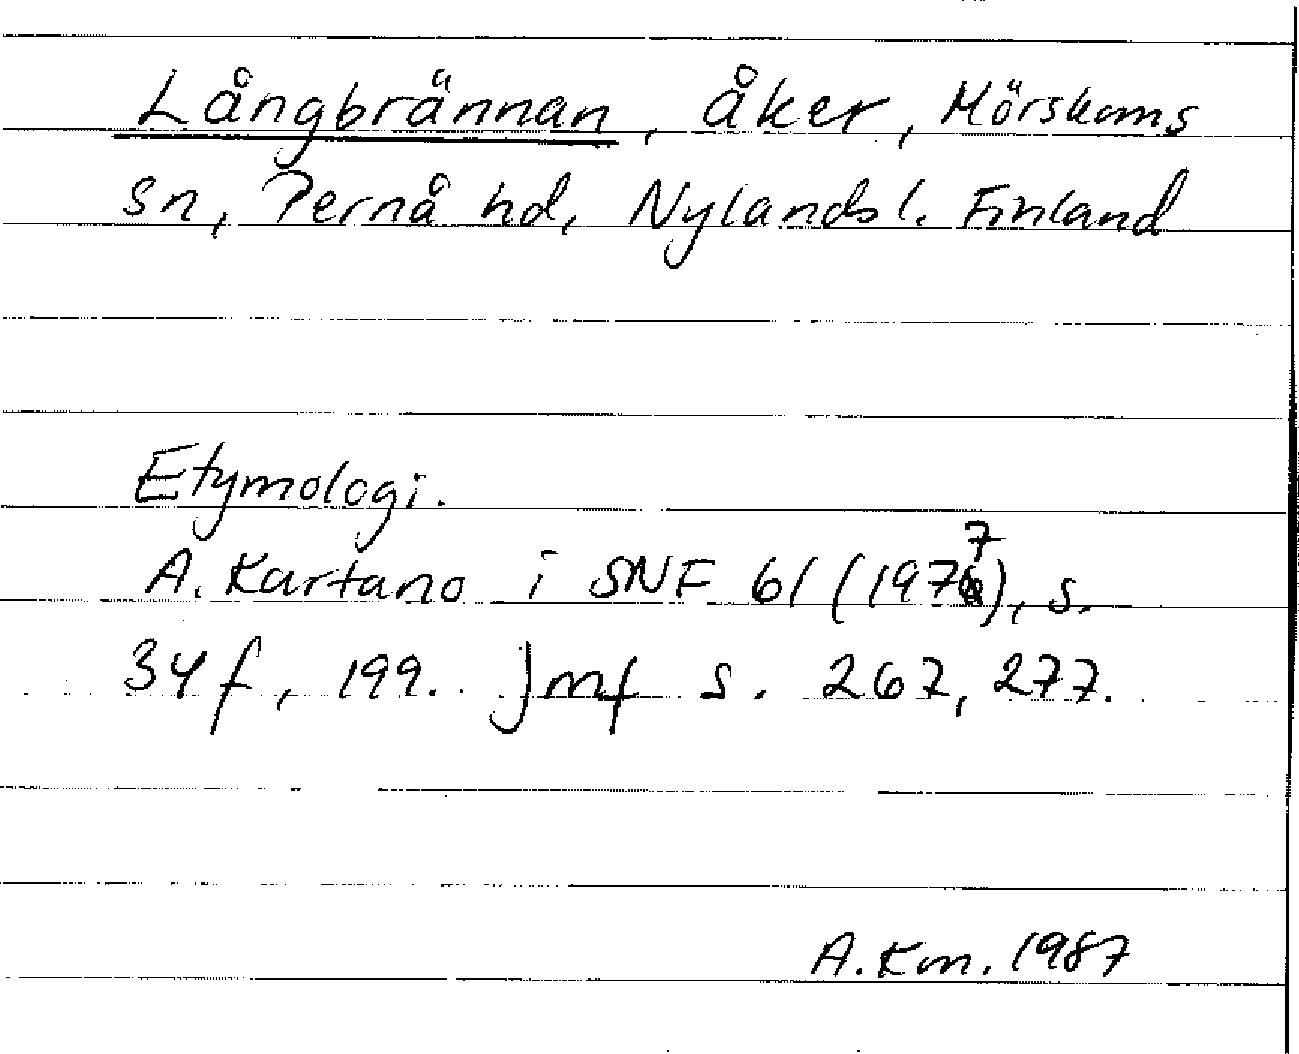 Långbrännan, åker, Mörskoms
sn, Pernå hd, Nylands l. Finland
Etymologi.
A. Kartano i SNF 61 (1977), s.
34f, 199. Jmf s. 267, 277.
A. Km. 1987